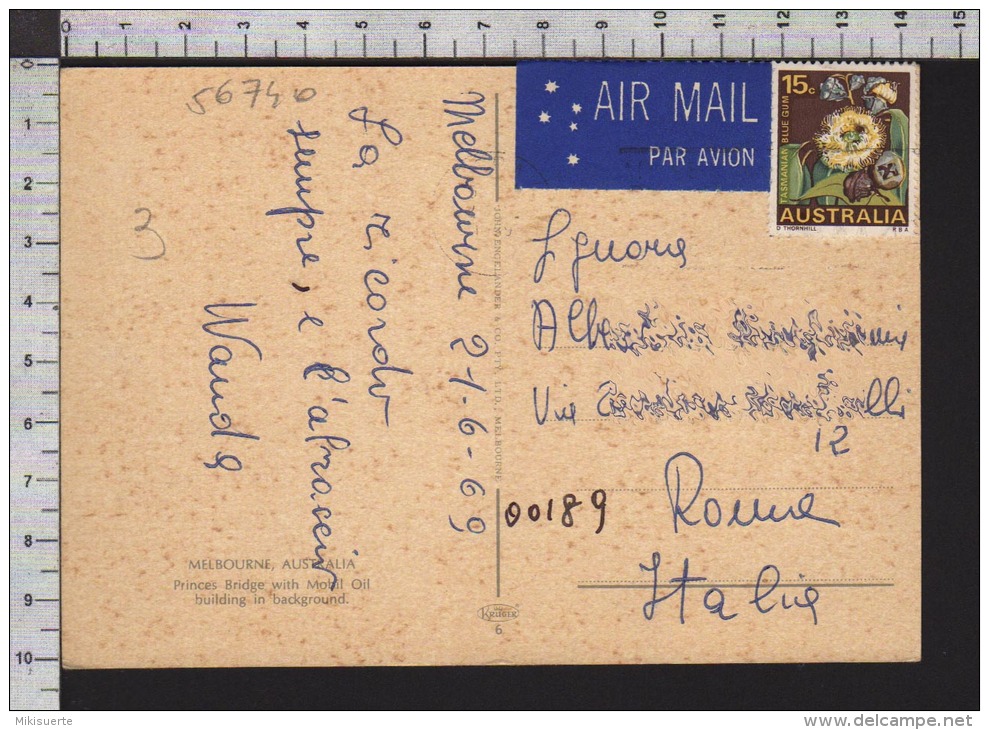 56740
3
Melbourne 21-6-69
La ricordo
sempre, e l'abraccio
Wanda
MELBOURNE, AUSTRALIA
Princes Bridge with Mobil Oil
building in background.
JOHN ENGELANDER & CO. PTY. LTD. MELBOURNE
KRUGER
6
AIR MAIL
PAR AVION
15c
TASMANIAN BLUE GUM
AUSTRALIA
D THORNHILL RBA
Signora
Via
12
00189
Roma
Italia
0 1 2 3 4 5 6 7 8 9 10 11 12 13 14 15
0
1
2
3
4
5
6
7
8
9
10
Mikisuerte
www.delcampe.net